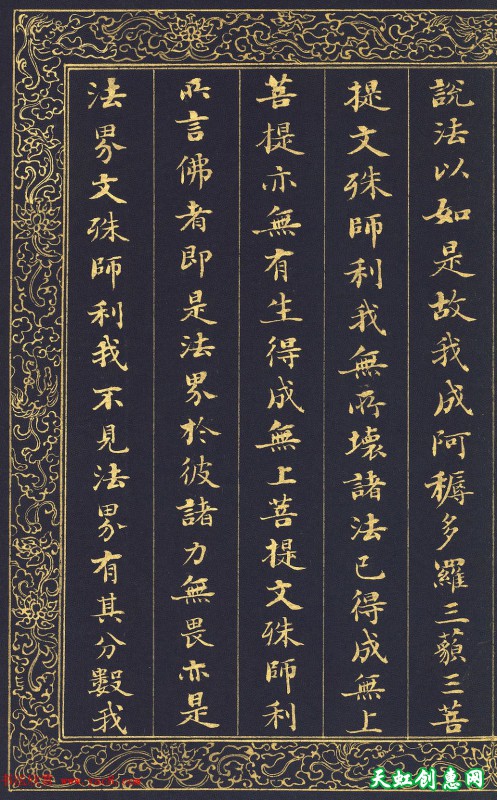 說法以如是故我成阿耨多羅三藐三菩
提文殊師利我無所壞諸法已得成無上
菩提亦無有生得成無上菩提文殊師利
所言佛者即是法界於彼諸力無畏亦是
法界文殊師利我不見法界有其分數我
天虹创意网